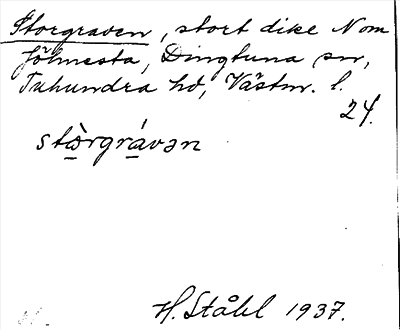 Storgraven, stort dike N om
Jöhnesta, Dingtuna sn,
Tuhundra hd, Västm. l.
24.
stɷ̀rgrávən
H. Ståhl 1937.